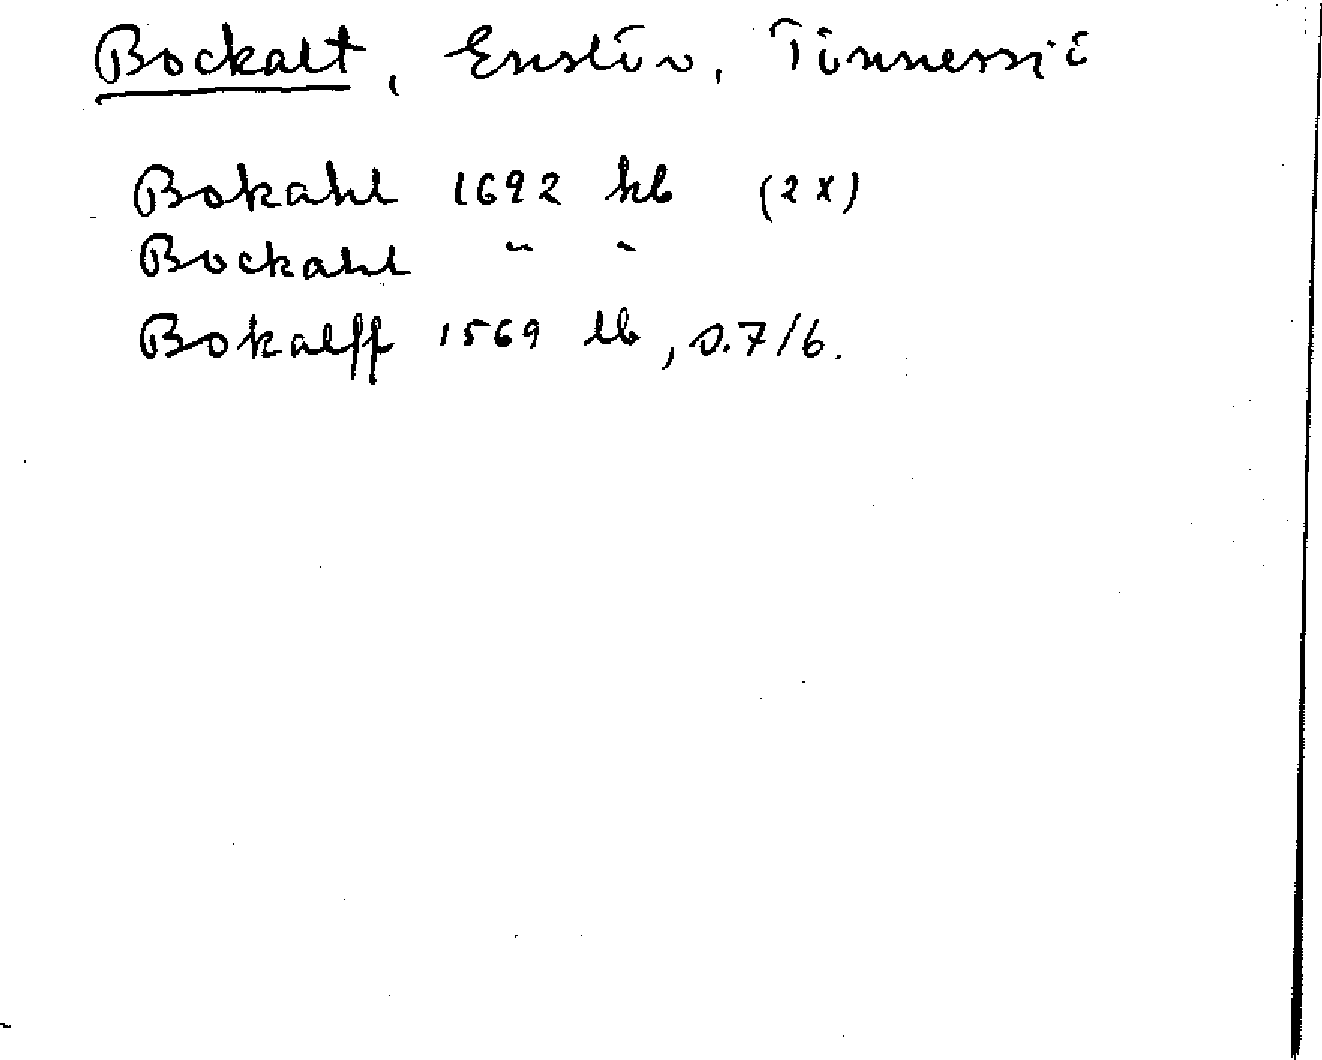 Bockalt, Enslöv, Tönnersjö
Bokahl 1692 kb (2x)
Bockahl " "
Bokalff 1569 lb, s.7/6.